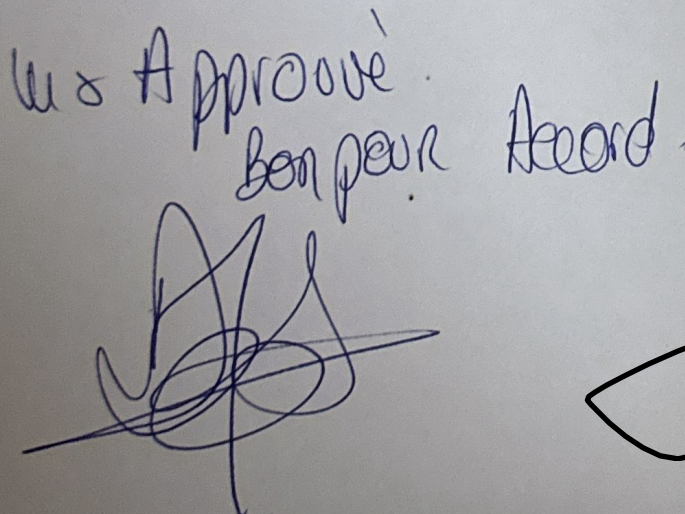 Lu & Approuvé.
Bon pour Accord.